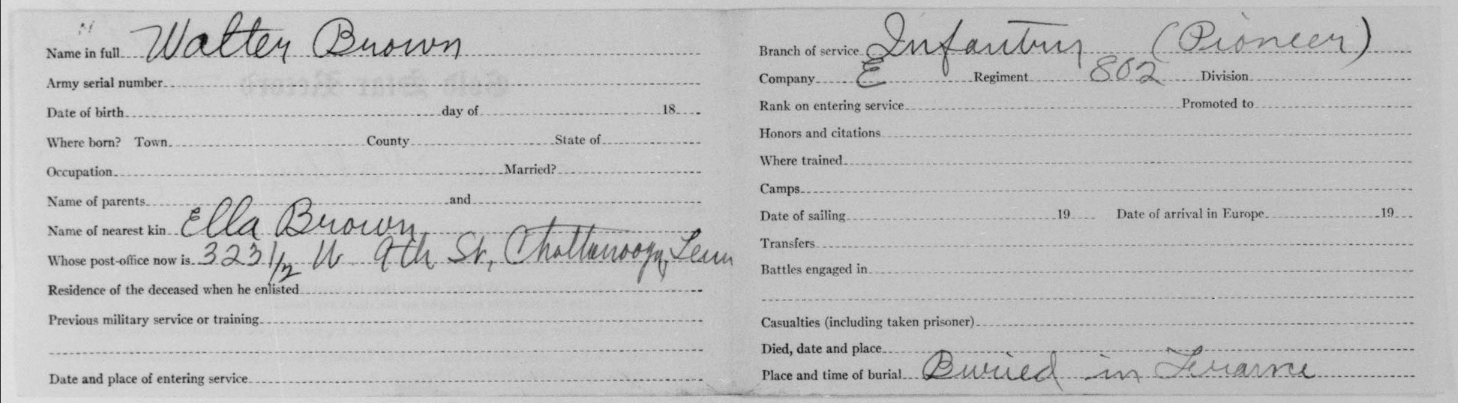 Name in full Walter Brown
Army serial number
Date of birth day of 18
Where born? Town County State of
Occupation Married?
Name of parents and
Name of nearest kin Ella Brown
Whose post-office now is 323 1/2 W 9th St, Chattanooga, Tenn
Residence of the deceased when he enlisted
Previous military service or training
Date and place of entering service
Branch of service Infantry (Pioneer)
Company E Regiment 802 Division
Rank on entering service Promoted to
Honors and citations
Where trained
Camps
Date of sailing 19 Date of arrival in Europe 19
Transfers
Battles engaged in
Casualties (including taken prisoner)
Died, date and place
Place and time of burial Buried in France